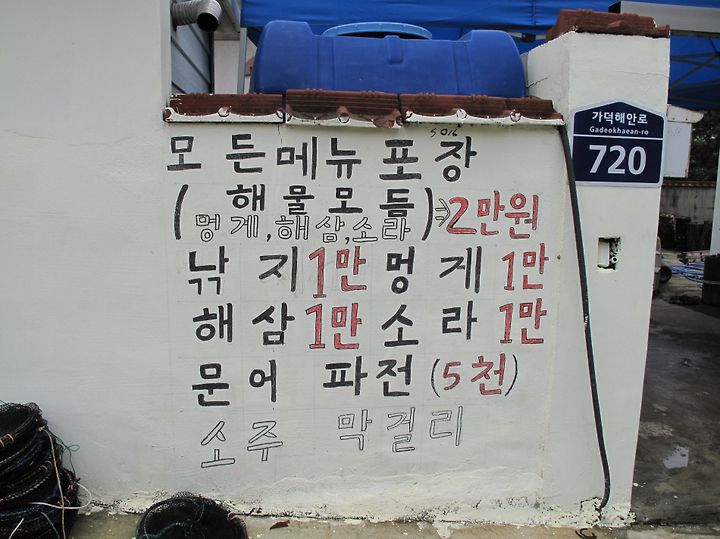 가덕해안로
Gadeokhaean-ro
720
모든메뉴포장
(해물모듬
멍게,해삼,소라)⇒2만원
낚지1만 멍게 1만
해삼 1만 소라 1만
문어 파전 (5천)
소주 막걸리